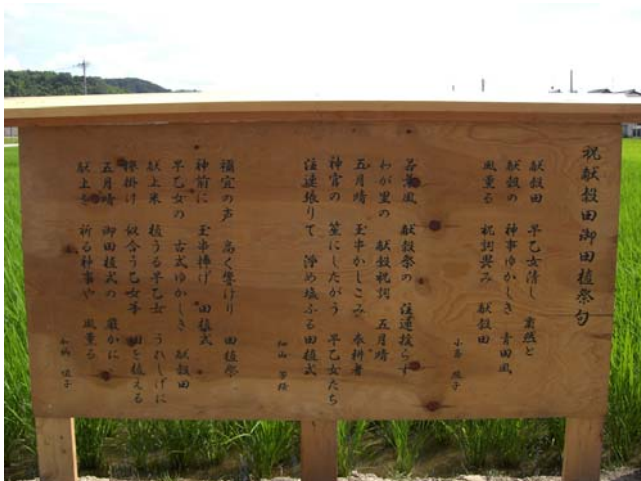 祝献穀田御田植祭句
献穀田 早乙女清し 粛然と
献穀の 神事ゆかしき 青田風
風薫る 祝詞異み 献穀田
小島 恒子
若葉風 献穀祭の 注連揺らす
わが里の 献穀祝詞 五月晴
五月晴 玉串かしこみ 奉耕者
神官の 笙にしたがう 早乙女たち
注連張りて 浄め塩ふる田植式
細山
禰宜の声 高く響けり 田植祭
神前に 玉串捧げ 田植式
早乙女の 古式ゆかしき 献穀田
献上米 植うる早乙女 うれしげに
襷掛け 似合う乙女等 田を植える
五月晴 御田植式の 厳かに
献上を 祈る神事や 風薫る
恒子